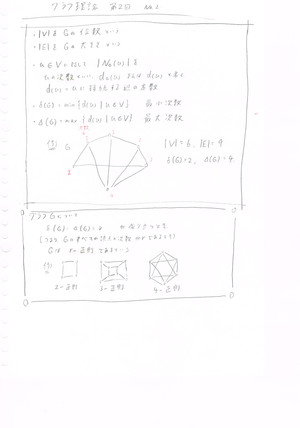 グラフ理論 第2回 No.1
・|V|を Gの位数という
・|E|を Gの大きさという
・u∈Vに対して |N_G(u)| を
uの次数といい、d_G(u) または d(u) と書く
d(u) = uに接続する辺の本数
・δ(G) = min{d(u) | u∈V} 最小次数
・Δ(G) = max{d(u) | u∈V} 最大次数
例) G
|V| = 6, |E| = 9
δ(G) = 2, Δ(G) = 4
グラフGについて
δ(G) = Δ(G) = r が成り立つとき
(つまり Gのすべての頂点の次数がrであるとき)
Gは r-正則であるという
例)
2-正則 3-正則 4-正則